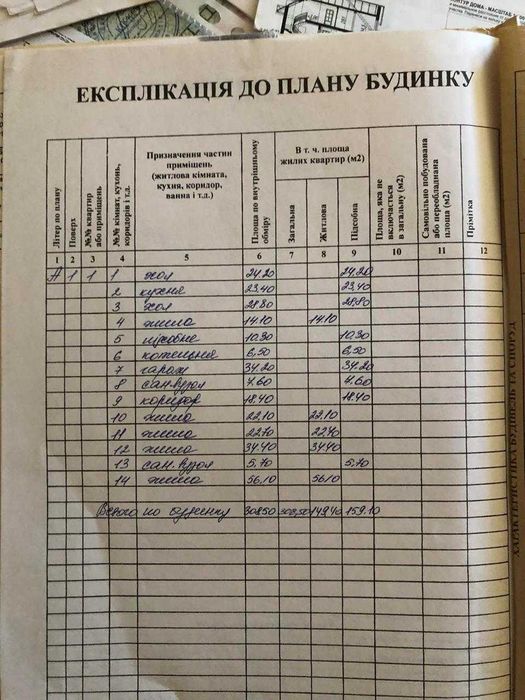 КОНТУР ДОМА - МАСШТАБ
ЕКСПЛІКАЦІЯ ДО ПЛАНУ БУДИНКУ
Літер по плану
Поверх
№№ квартир або приміщень
№№ кімнат, кухонь, коридорів і т.д.
Призначення частин приміщень (житлова кімната, кухня, коридор, ванна і т.д.)
Площа по внутрішньому обміру
В т. ч. площа жилих квартир (м2)
Загальна
Житлова
Підсобна
Площа, яка не включається в загальну (м2)
Самовільно побудована або переобладнана площа (м2)
Прімітка
1 2 3 4 5 6 7 8 9 10 11 12
А 1 1 1 хол 24.20 24.20
2 кухня 23,40 23,40
3 хол 28.80 28.80
4 жила 14.10 14.10
5 10,30 10.30
6 котельня 6,50 6,50
7 гараж 34.20 34.20
8 сан.вузол 4.60 4.60
9 коридор 18.40 18.40
10 жила 22,10 22,10
11 жила 22,40
12 жила 34.40 34.40
13 сан.вузол 5,70 5,70
14 жила 56,10 56,10
Всього по будинку 308,50 308,50 149,40 159,10
ХАРАКТЕРИСТИКА БУДІВЕЛЬ ТА СПОРУД